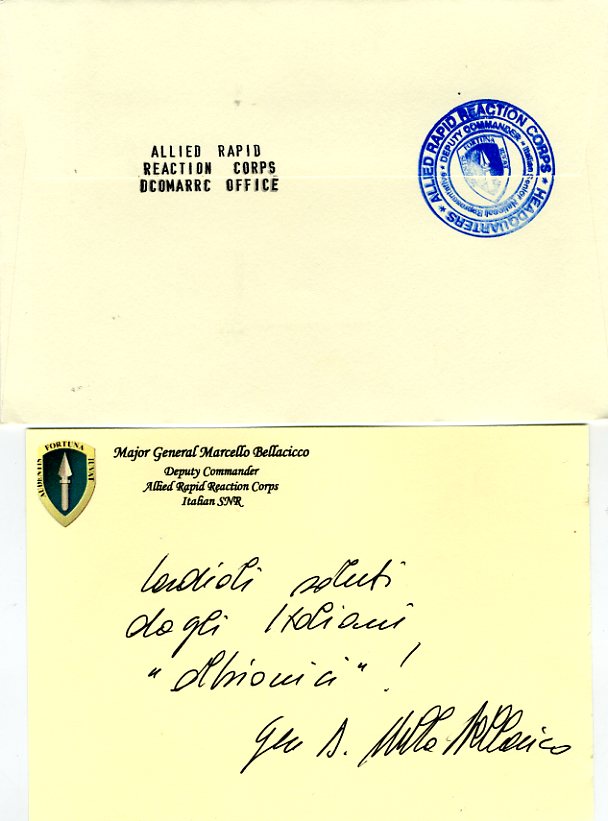 ALLIED RAPID
REACTION CORPS
DCOMARRC OFFICE
★ ALLIED RAPID REACTION CORPS ★ HEADQUARTERS
DEPUTY COMMANDER ★ Italian Senior National Representative ★
FORTUNA
AUDENTIS FORTUNA IUVAT
Major General Marcello Bellacicco
Deputy Commander
Allied Rapid Reaction Corps
Italian SNR
Cordiali saluti
dagli Italiani
"Albionici"!
Gen D. Marcello Bellacicco